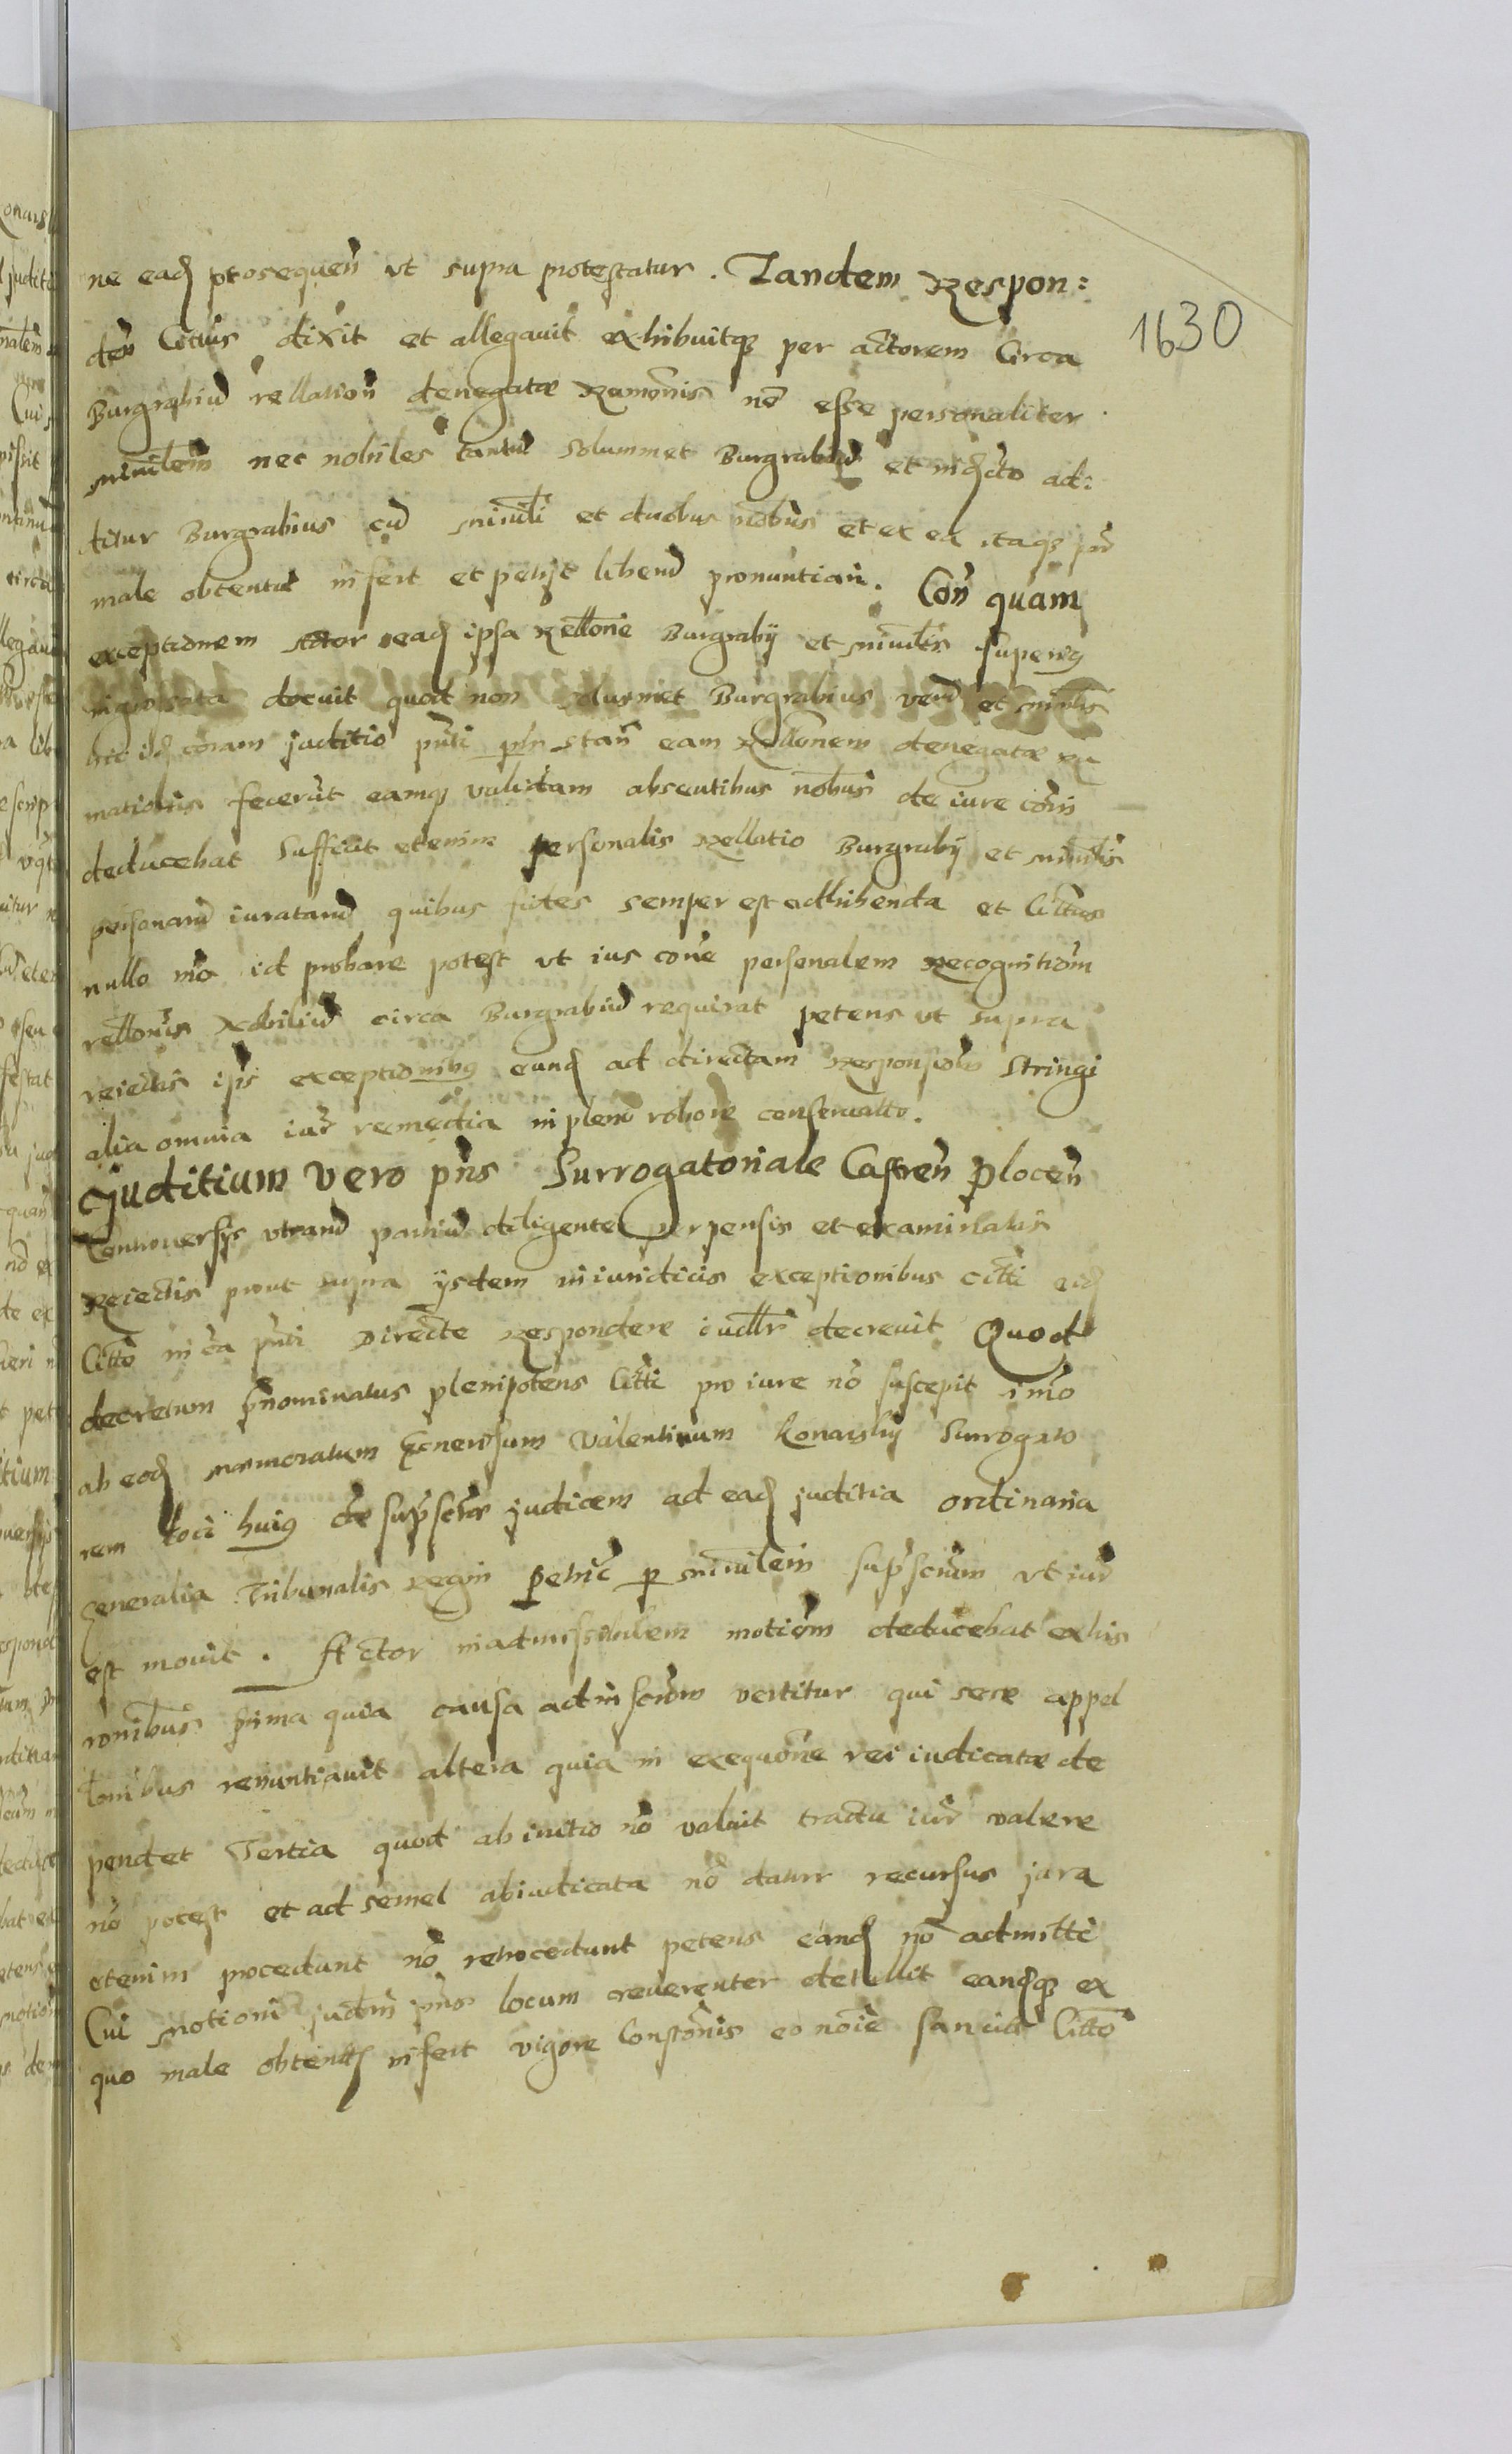 ne ead prosequen ut supra protestatur. Tandem Respon:
den Cittus dixit et allegavit exhibuitq per actorem Circa
Burgrabiu rellation denegatæ Ramonis no esse personaliter
minlem nec nobiles tantu solummet Burgrabiu et ad:
titur Burgrabius cu minli et duobus nobus et ex ea itaq
male obtenta infert et petijt libend pronuntiari. Con quam
exceptionem actor ead ipsa Rellone Burgrabij et minlis superig
ingrossata docuit quod non solusmet Burgrabius veru et minlis
hic id coram juditio pnti plr stan eam Rellonem denegatæ ra
mationis fecerut eamq validam absentibus nobus de iure coni
deducebat Sufficit etenim personalis Rellatio Burgrabij et minlis
personaru iurataru quibus fides semper est adhibenda et Cittus
nullo mo id probare potest ut ius cone personalem Recognitiom
rellonis Nobiliu circa Burgrabiu requirat petens ut supra
reiectis ips exceptionibus eund ad directam Responsiom stringi
alia omnia iur remedia in pleno robore conservatto.
Juditium vero pns Surrogatoriale Castren Plocen
Controversijs utraru partiu diligenter perpensis et examinatis
Reiectis prout supra ijsdem iniuridicis exceptionibus citti eid
Citto in ca pnti Directe Respondere iudlr decrevit Quod
decretum pnominatus plenipotens Citti pro iure no suscepit imo
ab eod memoratum Generosum Valentinum Konarskij Surrogato
rem loci huiq de supscta judicem ad ead juditia ordinaria
generalia Tribunalis Regni Petric p minlem supscrium ut iur
est movit. Actor inadmissibilem motiom deducebat ex his
ronibus prima quia causa ad inscrom vertitur qui sese appel
lonibus renuntiavit altera quia in exequone rei iudicatæ de
pendet Tertia quod ab initio no valuit tractu iur valere
no potest et ad semel abiudicata no datur recursus jura
etenim procedunt no retrocedunt petens eand no admitti
Cui motioni judm pns locum reverenter detullit eandq ex
quo male obtent infert vigore Constonis eo noie sancitæ Citto
1630